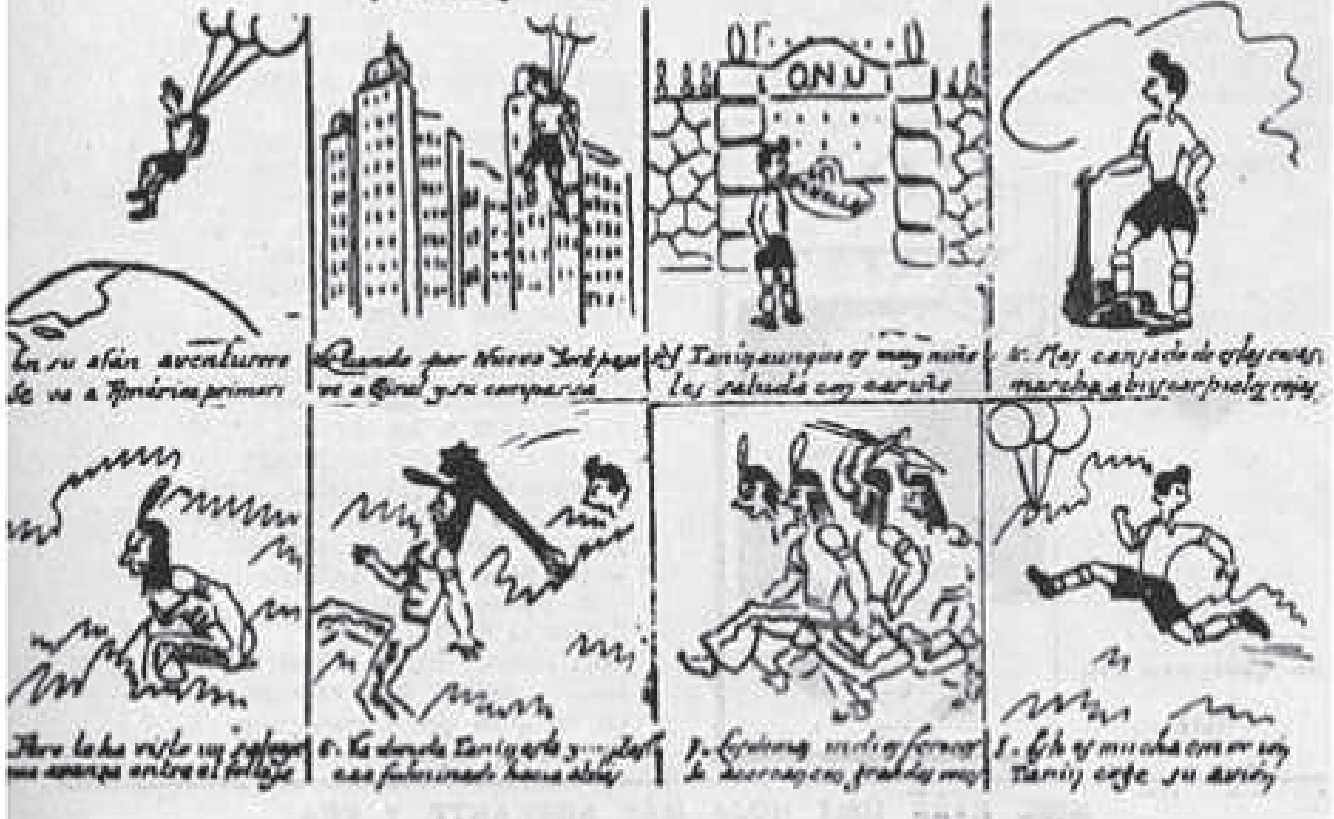 En su afán aventurero
se va a América primero
Cuando por Nueva York pasa
ve a Giral y su comparsa
O.N.U
Y Tanis aunque es muy niño
les saluda con cariño
Mas cansado de estas cosas
marcha a buscar pieles rojas
Pero le ha visto un salvaje
que avanza entre el follaje
donde Tanis esta y
cae fulminado hacia atrás
indios feroces
se acercan
es mucha emoción
Tanis coge su avión